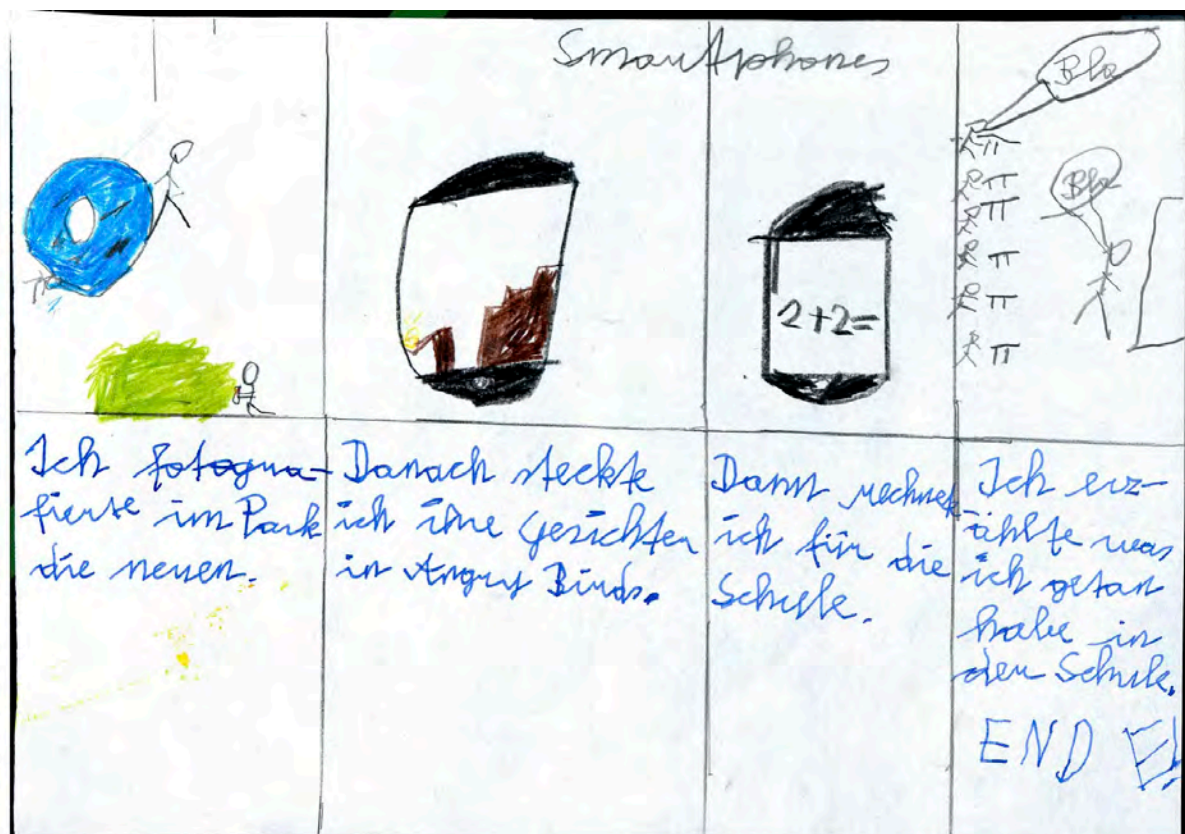 Smartphones
Bla
Bla
2+2=
Ich fotogra-
fierte im Park
die neuen.
Danach steckte
ich ihre Gesichter
in Angry Birds.
Dann rechnet
ich für die
Schule.
Ich erz-
ählte was
ich getan
habe in
der Schule.
END